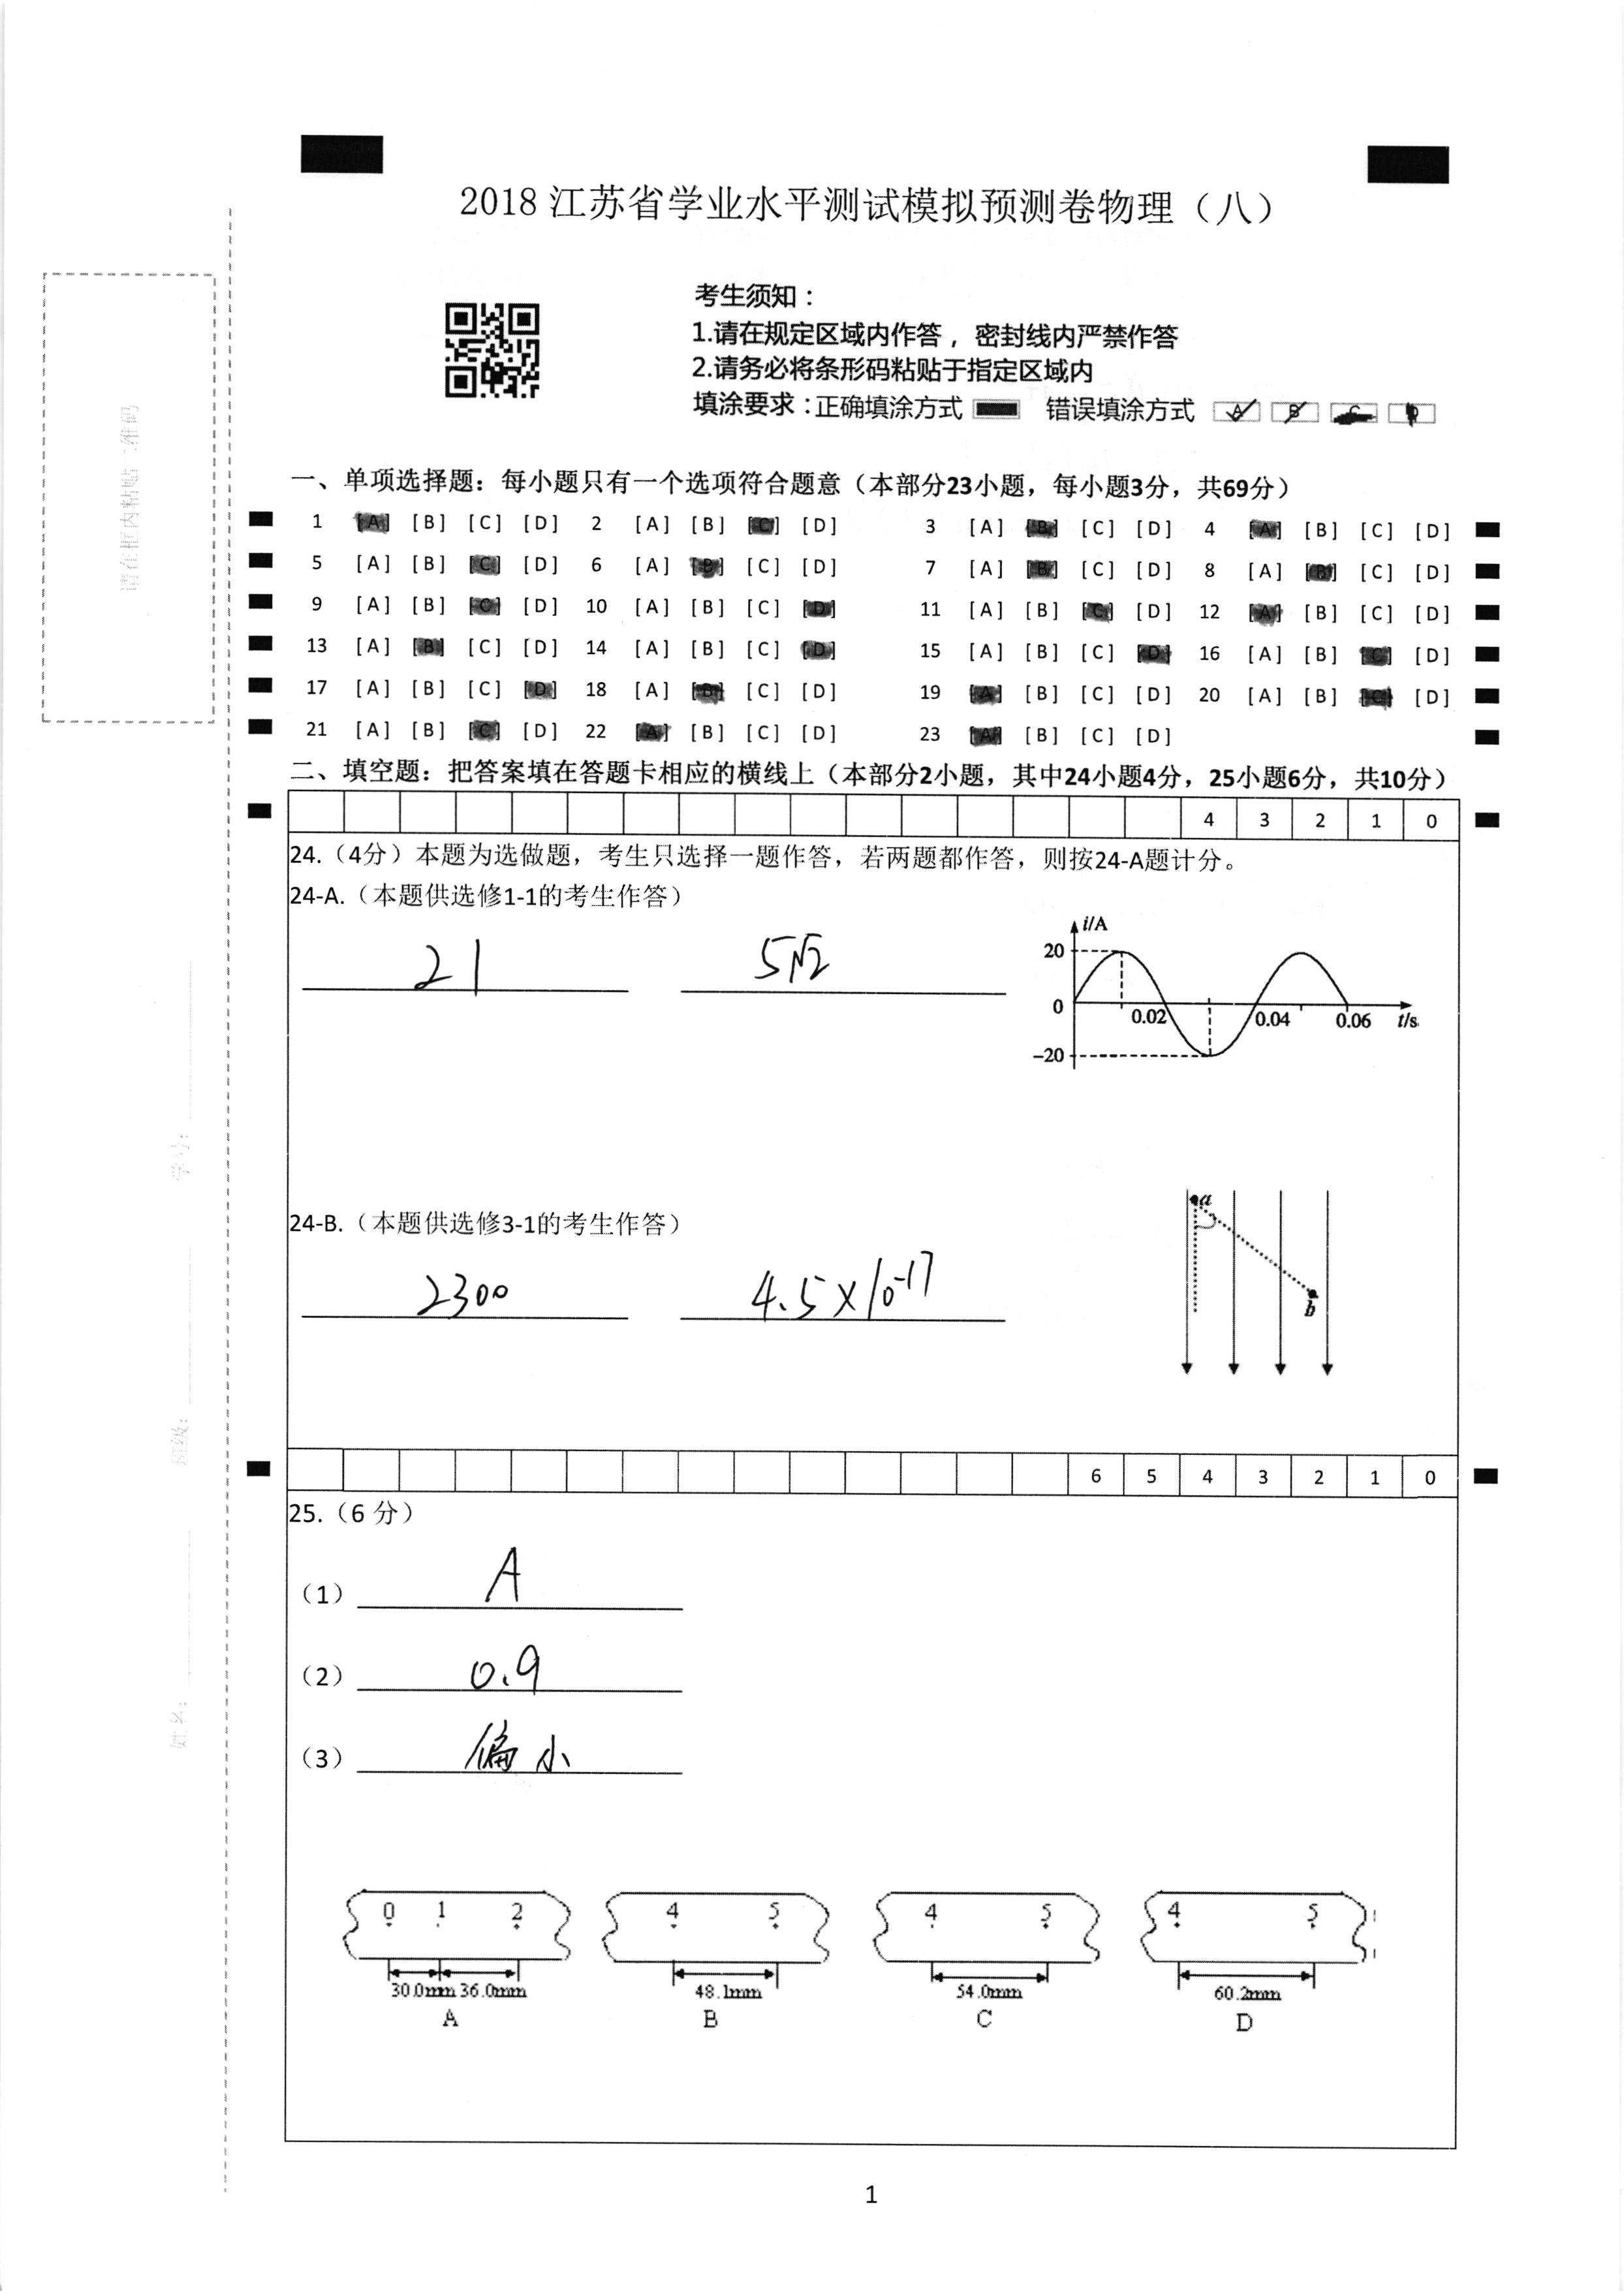 2018 江苏省学业水平测试模拟预测卷物理（八）
考生须知：
1.请在规定区域内作答，密封线内严禁作答
2.请务必将条形码粘贴于指定区域内
填涂要求：正确填涂方式 错误填涂方式 A B C D
请在框内粘贴二维码
学号：
班级：
姓名：
一、单项选择题：每小题只有一个选项符合题意（本部分23小题，每小题3分，共69分）
1 [A] [B] [C] [D] 2 [A] [B] [C] [D] 3 [A] [B] [C] [D] 4 [A] [B] [C] [D]
5 [A] [B] [C] [D] 6 [A] [B] [C] [D] 7 [A] [B] [C] [D] 8 [A] [B] [C] [D]
9 [A] [B] [C] [D] 10 [A] [B] [C] [D] 11 [A] [B] [C] [D] 12 [A] [B] [C] [D]
13 [A] [B] [C] [D] 14 [A] [B] [C] [D] 15 [A] [B] [C] [D] 16 [A] [B] [C] [D]
17 [A] [B] [C] [D] 18 [A] [B] [C] [D] 19 [A] [B] [C] [D] 20 [A] [B] [C] [D]
21 [A] [B] [C] [D] 22 [A] [B] [C] [D] 23 [A] [B] [C] [D]
二、填空题：把答案填在答题卡相应的横线上（本部分2小题，其中24小题4分，25小题6分，共10分）
4 3 2 1 0
24.（4分）本题为选做题，考生只选择一题作答，若两题都作答，则按24-A题计分。
24-A.（本题供选修1-1的考生作答）
21 5√2
i/A
20
0 0.02 0.04 0.06 t/s
-20
24-B.（本题供选修3-1的考生作答）
2300 4.5×10⁻¹⁷
a
b
6 5 4 3 2 1 0
25.（6 分）
（1） A
（2） 0.9
（3） 偏小
0 1 2 4 5 4 5 4 5
30.0mm 36.0mm 48.1mm 54.0mm 60.2mm
A B C D
1